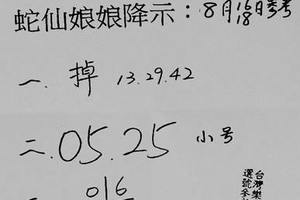 蛇仙娘娘降示：8月16日18日參考
一、掉 13.29.42
二、05.25 小号
016
台灣樂
選號參